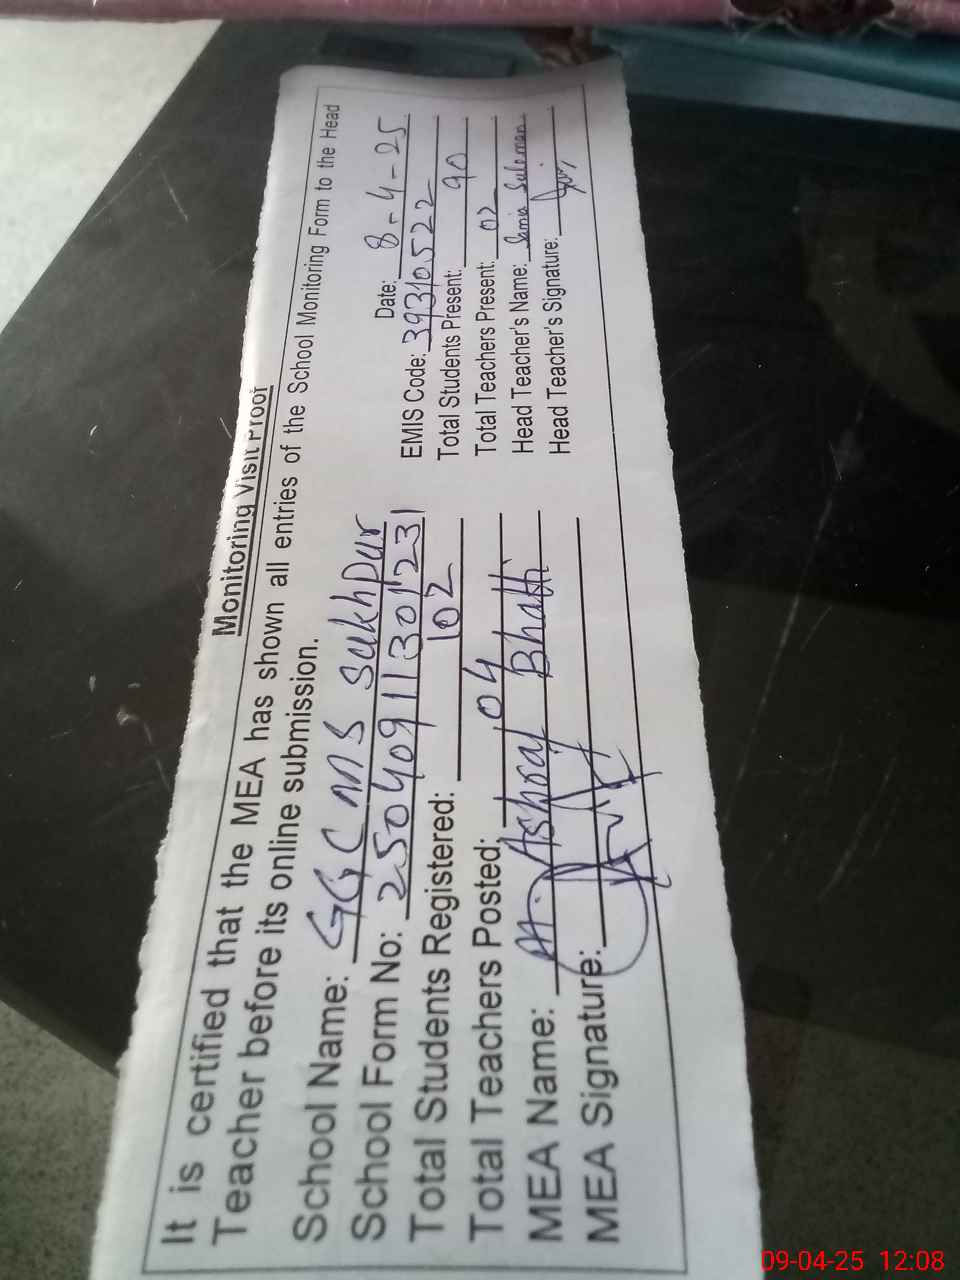 Monitoring Visit Proof
It is certified that the MEA has shown all entries of the School Monitoring Form to the Head
Teacher before its online submission.
Date: 8-4-25
School Name: GG CMS Sukhpur EMIS Code: 39310522
School Form No: 25040911301231 Total Students Present: 90
Total Students Registered: 102 Total Teachers Present: 02
Total Teachers Posted: 04 Head Teacher's Name: Samia Suleman
MEA Name: M. Ashraf Bhatti Head Teacher's Signature:
MEA Signature:
09-04-25 12:08